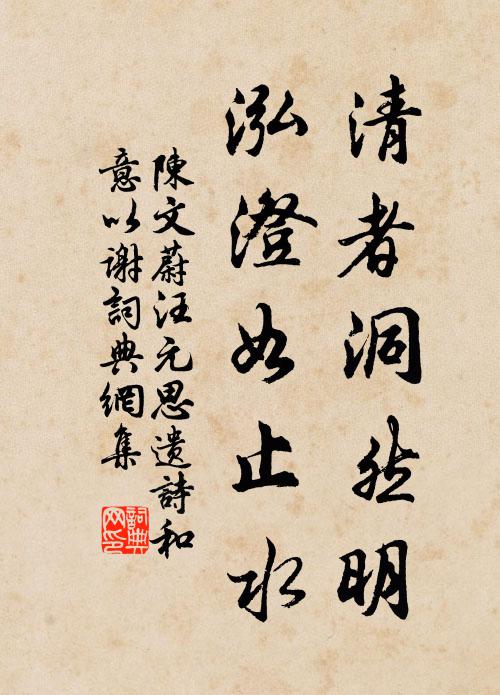 清者洞然明
泓澄如止水
陳文蔚汪元思遗詩和
意以谢詞典網集
詞典
网印